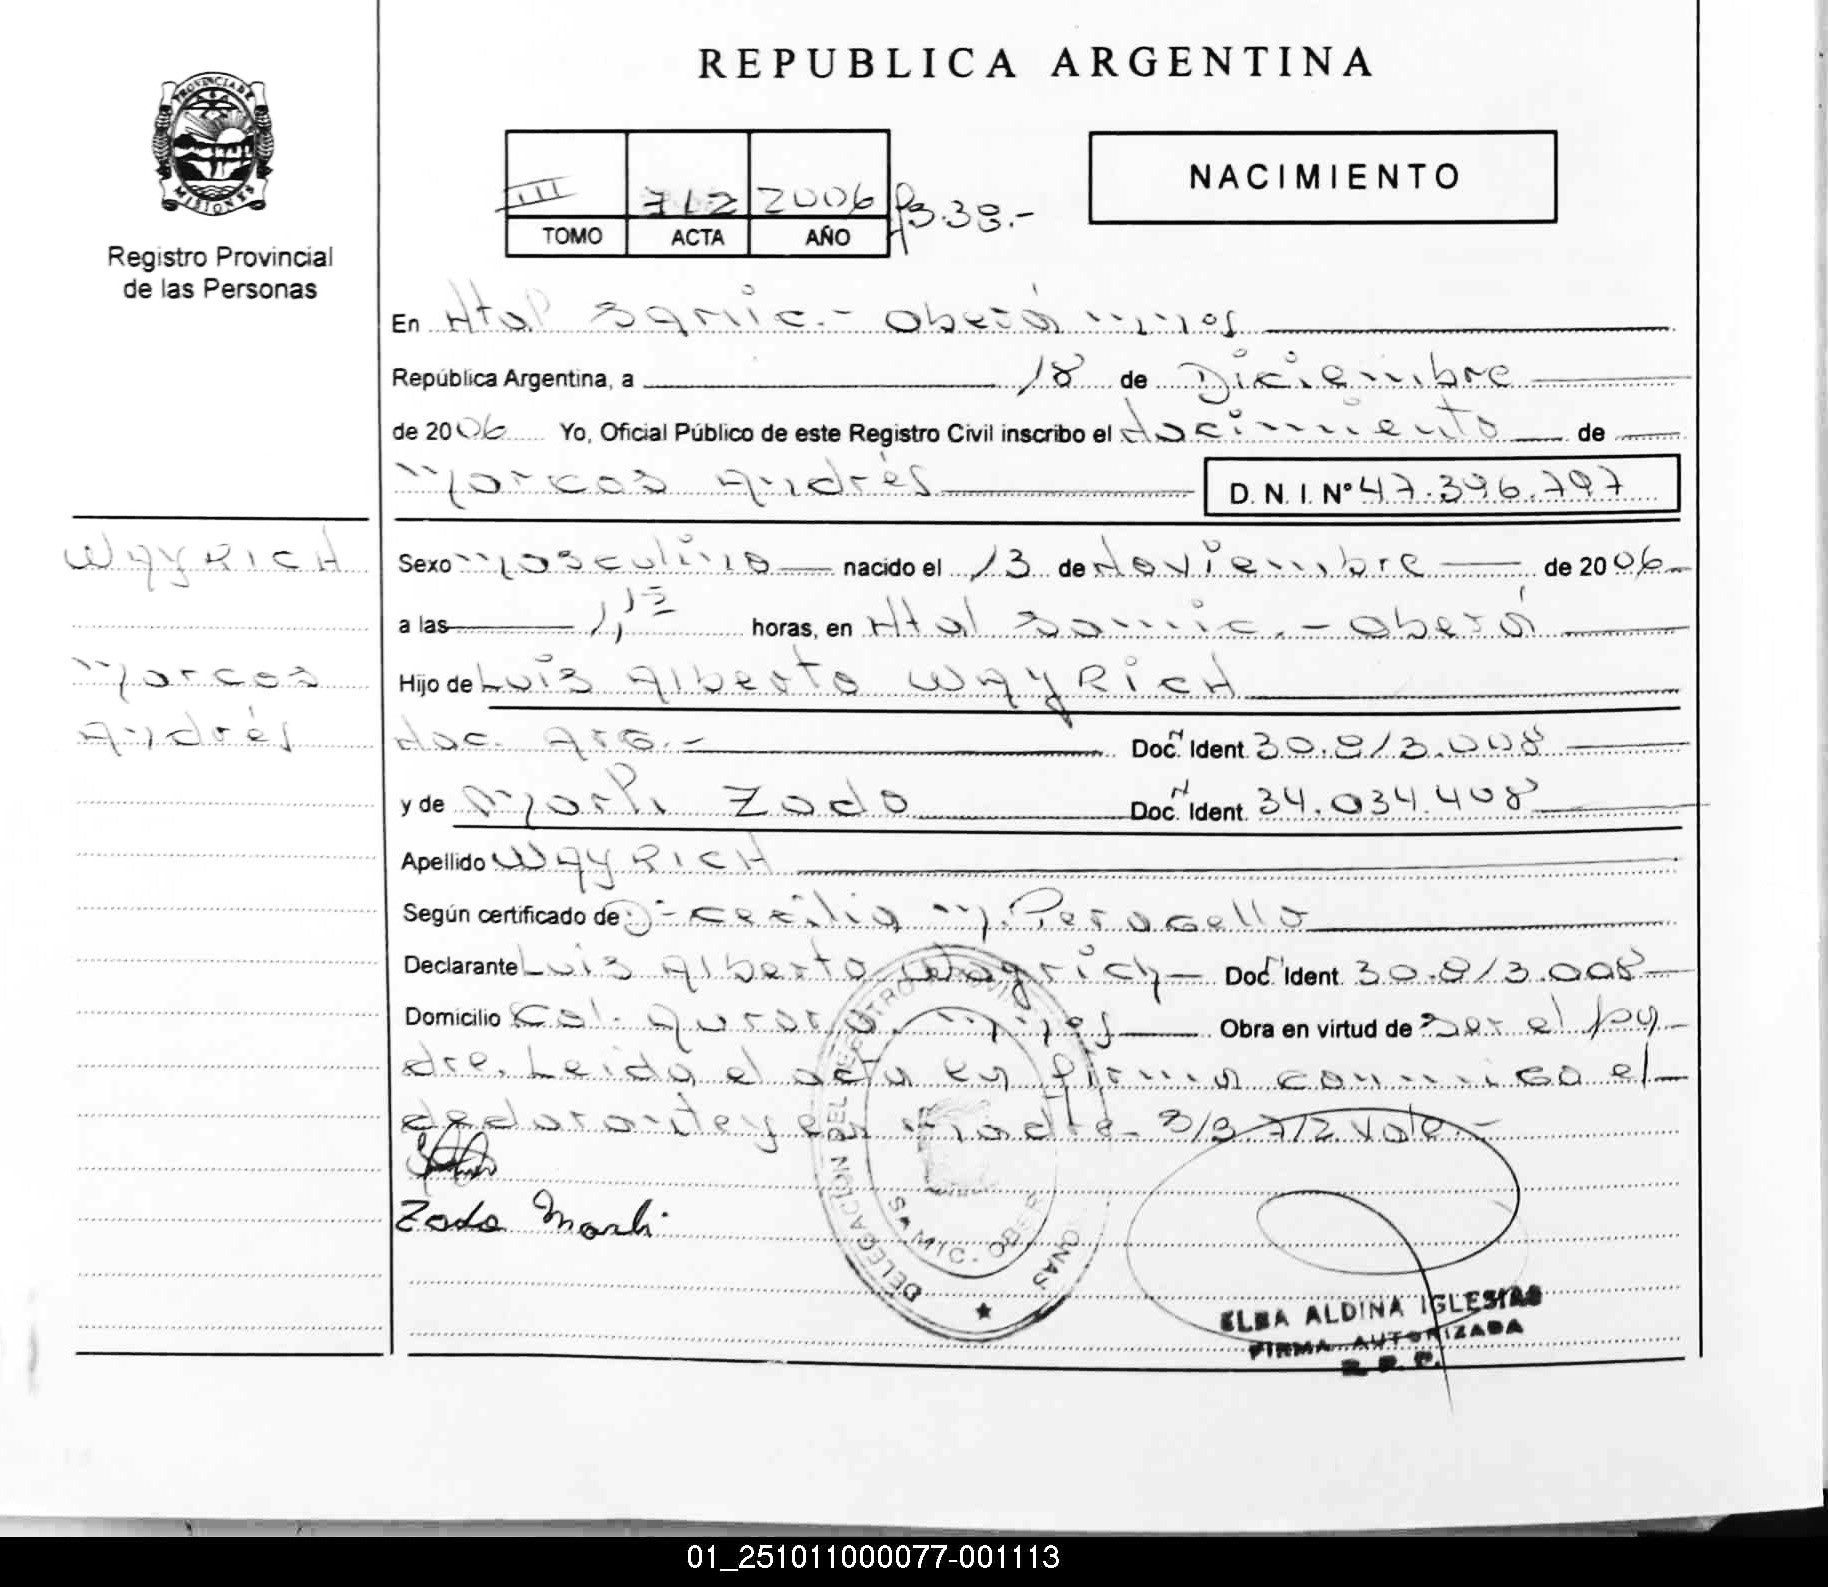 REPUBLICA ARGENTINA
PROVINCIA DE MISIONES
Registro Provincial
de las Personas
III 712 2006
TOMO ACTA AÑO
NACIMIENTO
En Htal Samic.- Oberá Mnes
República Argentina, a 18 de Diciembre
de 2006 Yo, Oficial Público de este Registro Civil inscribo el Nacimiento de
Marcos Andrés D. N. I. Nº 47.396.797
WAYRICH
Marcos
Andrés
Sexo Masculino nacido el 13 de Noviembre de 2006
a las horas, en Htal Samic.- Oberá
Hijo de Luis Alberto WAYRICH
Nac. Arg.- Doc. Ident. 30.813.008
y de Marli Zado Doc. Ident. 34.034.408
Apellido WAYRICH
Según certificado de Cecilia M.
Declarante Luis Alberto Wayrich Doc. Ident. 30.813.008
Domicilio Col. Aurora Mnes Obra en virtud de ser el pa
dre. Leida el acta la firma conmigo el
declarante y la madre- 712 Vale.-
Zado Marli
DELEGACION DEL REGISTRO
SAMIC. OBERA
ELBA ALDINA IGLESIAS
FIRMA AUTORIZADA
R. P. P.
01_251011000077-001113